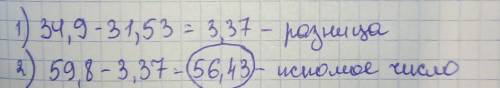 1) 34,9 - 31,53 = 3,37 - разница
2) 59,8 - 3,37 = 56,43 - искомое число